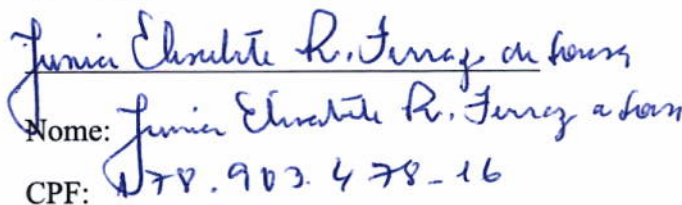 Junia Elisabete R. Ferraz de Sousa
Nome: Junia Elisabete R. Ferraz de Sous
CPF: 178.903.478-16